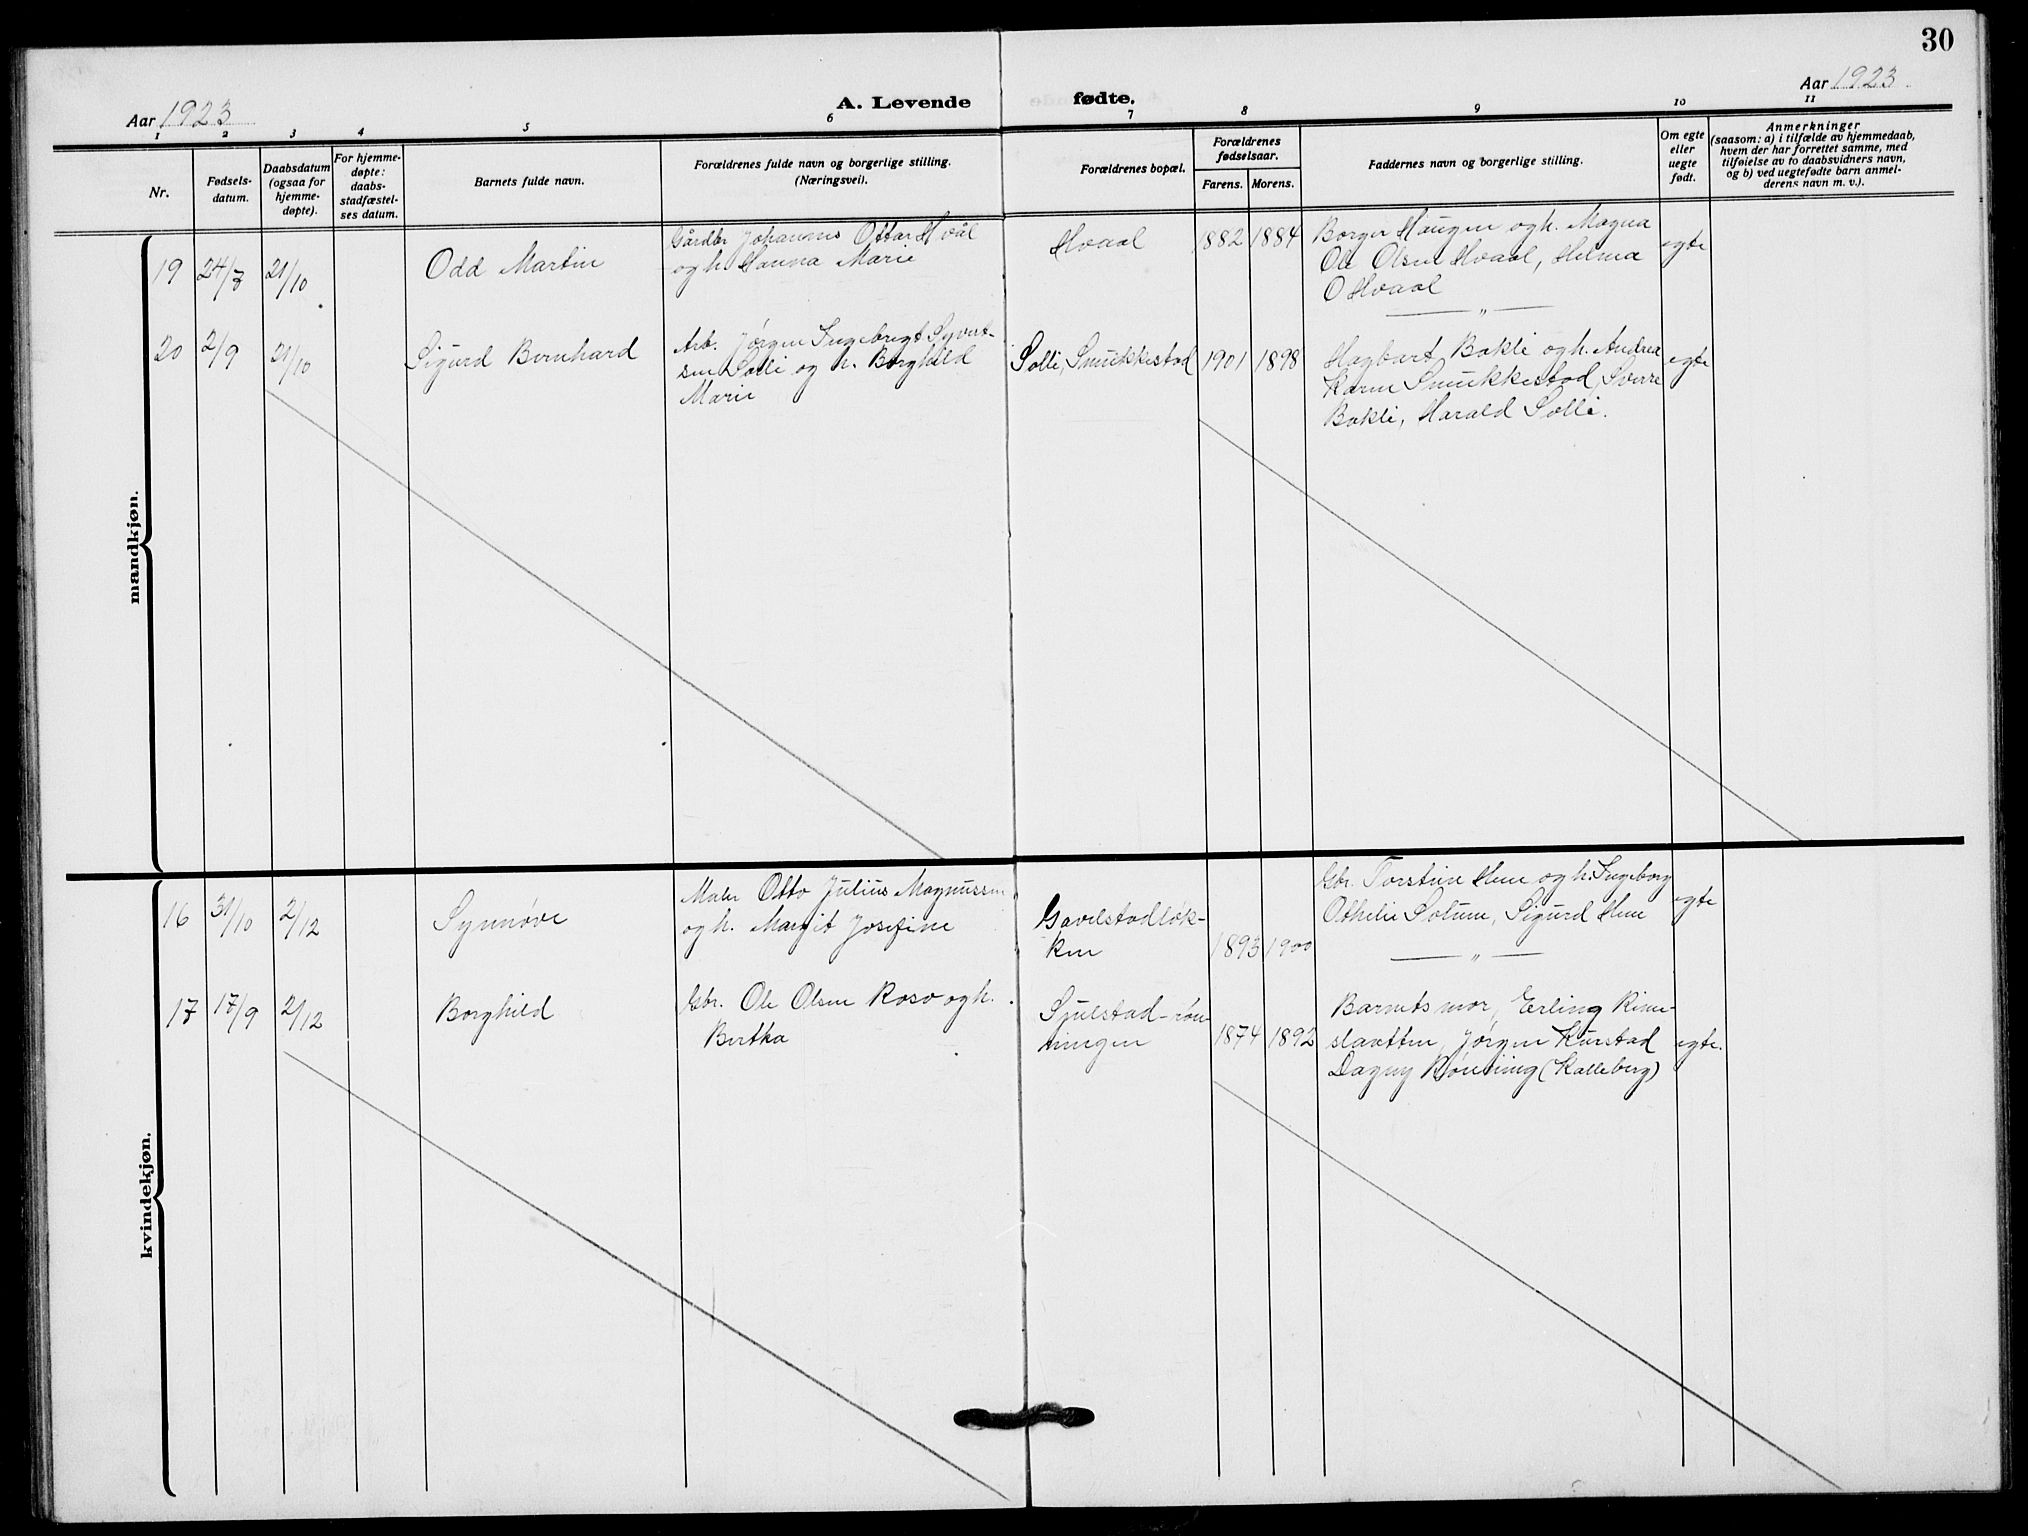 30
Aar 1923
A. Levende
fødte.
Aar 1923.
1 2 3 4 5 6 7 8 9 10 11
Nr.
Fødsels-
datum.
Daabsdatum
(ogsaa for
hjemme-
døpte).
For hjemme-
døpte:
daabs-
stadfæstel-
ses datum.
Barnets fulde navn.
Forældrenes fulde navn og borgerlige stilling.
(Næringsvei).
Forældrenes bopæl.
Forældrenes
fødselsaar.
Farens. Morens.
Faddernes navn og borgerlige stilling.
Om egte
eller
uegte
født.
Anmerkninger
(saasom: a) i tilfælde av hjemmedaab,
hvem der har forrettet samme, med
tilføielse av to daabsvidners navn,
og b) ved uegtefødte barn anmel-
derens navn m. v.).
mandkjøn.
19 24/7 21/10 Odd Martin
Gårdbr Johannes Ottar Hvål
og h. Hanna Marie
Hvaal
1882 1884
Borger Haugen og h. Magna
Ole Olsen Hvaal, Helma
O Hvaal
egte
— „ —
20 2/9 21/10 Sigurd Bernhard
Arb. Jørgen Ingebrigt Syvert-
sen Solli og h. Borghild
Marie
Solli, Smukkestad
1901 1898
Hagbart Bakli og h. Andrea
Karen Smukkestad, Sverre
Bakli, Harald Solli.
egte
kvindekjøn.
16 31/10 2/12 Synnøve
Maler Otto Julius Magnussen
og h. Margit Josefine
Gavelstadløk-
ken
1893 1900
Gbr. Torstein Hem og h. Ingeborg
Othelie Solum, Sigurd Hem
egte
— „ —
17 17/9 2/12 Borghild
Gbr. Ole Olsen Roso og h.
Bertha
Sjulstad-røn-
ningen
1874 1892
Barnets mor, Erling Rime-
slaatten, Jørgen Kurstad
Dagny Rønning (Kalleberg)
egte.